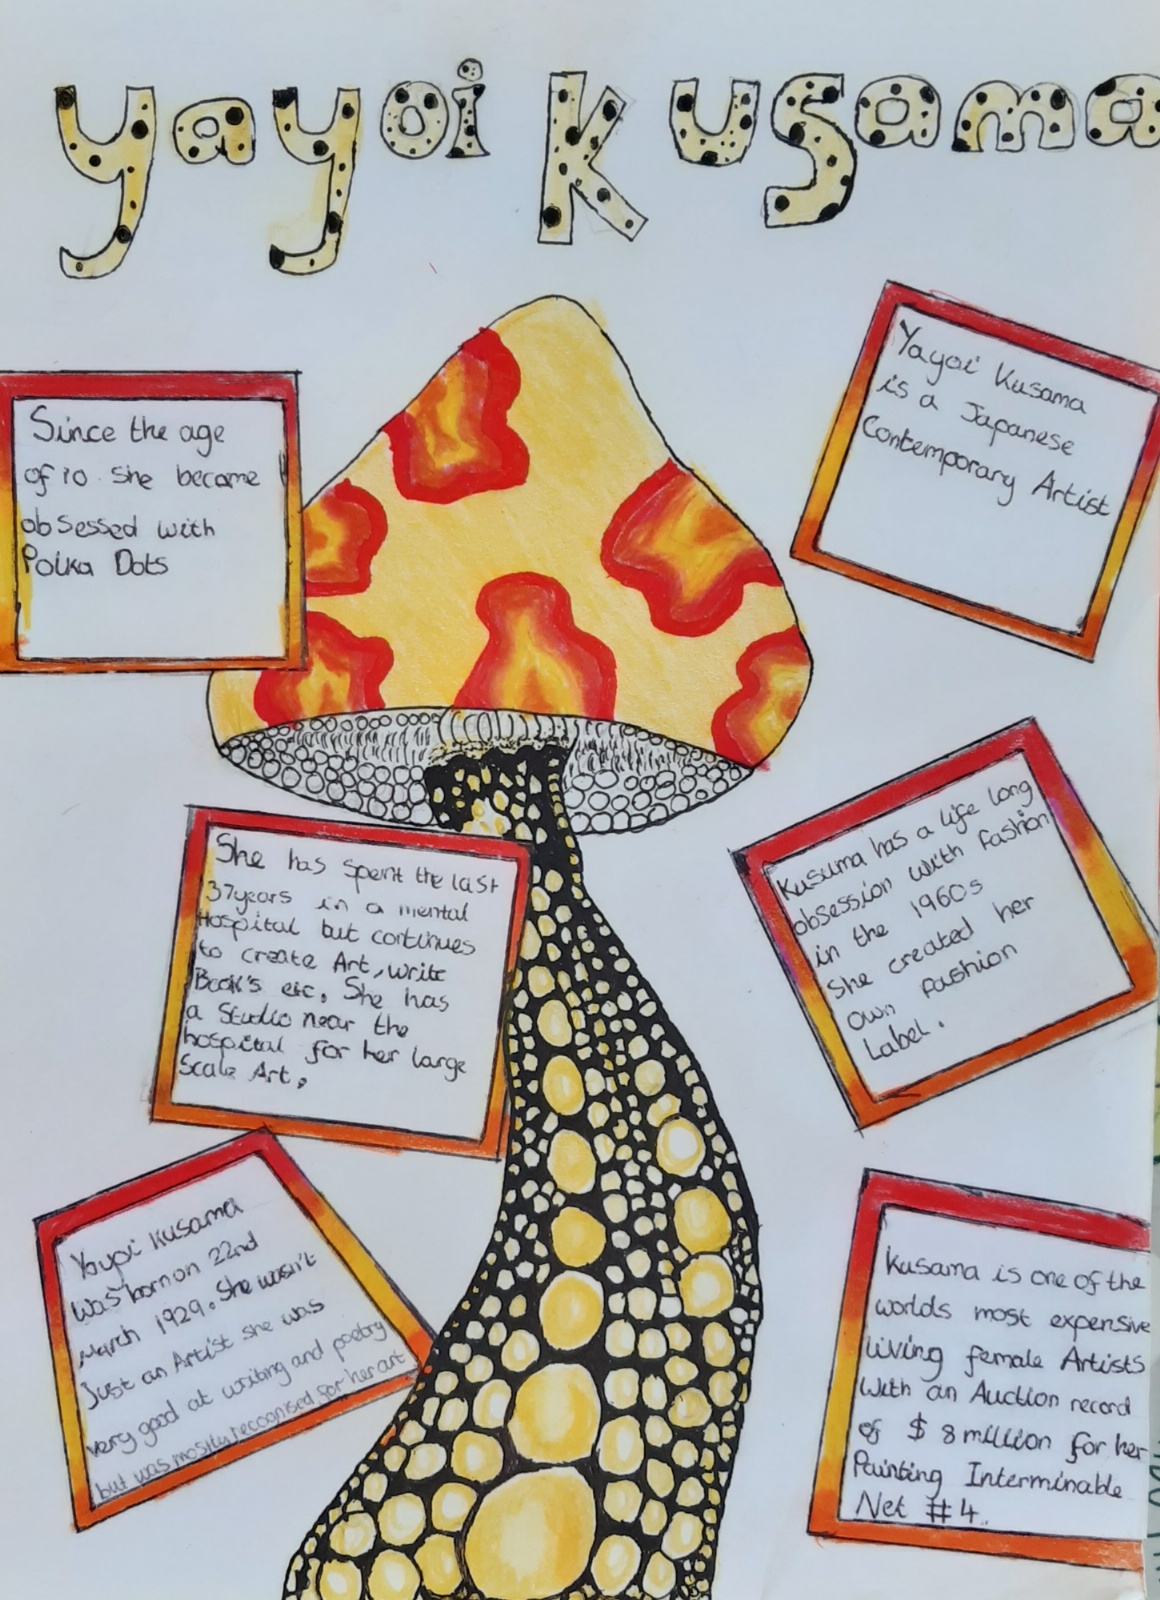 yayoi Kusama
Since the age
of 10 she became
obsessed with
Polka Dots
Yayoi Kusama
is a Japanese
Contemporary Artist
She has spent the last
37years in a mental
Hospital but continues
to create Art, write
Book's etc. She has
a Studio near the
hospital for her large
Scale Art.
Kusama has a life long
obsession with fashion
in the 1960s
She created her
own fashion
Label.
Yayoi Kusama
was born on 22nd
March 1929. She wasn't
Just an Artist she was
very good at writing and poetry
but was mostly recognised for her art
Kusama is one of the
worlds most expensive
living female Artists
with an Auction record
of $ 8 million for her
Painting Interminable
Net #4.